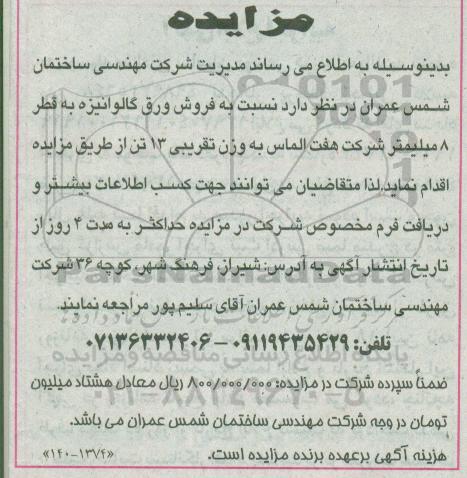 مزایده
بدینوسیله به اطلاع می رساند مدیریت شرکت مهندسی ساختمان
شمس عمران در نظر دارد نسبت به فروش ورق گالوانیزه به قطر
۸ میلیمتر شرکت هفت الماس به وزن تقریبی ۱۳ تن از طریق مزایده
اقدام نماید.لذا متقاضیان می توانند جهت کسب اطلاعات بیشتر و
دریافت فرم مخصوص شرکت در مزایده حداکثر به مدت ۴ روز از
تاریخ انتشار آگهی به آدرس: شیراز، فرهنگ شهر، کوچه ۳۶ شرکت
مهندسی ساختمان شمس عمران آقای سلیم پور مراجعه نمایند.
تلفن: ۰۹۱۱۹۴۳۵۴۲۹ - ۰۷۱۳۶۳۳۲۴۰۶
ضمناً سپرده شرکت در مزایده: ۸۰۰/۰۰۰/۰۰۰ ریال معادل هشتاد میلیون
تومان در وجه شرکت مهندسی ساختمان شمس عمران می باشد.
هزینه آگهی برعهده برنده مزایده است.
«۱۴۰-۱۳۷۴»
ParsNamadData
پایگاه اطلاع رسانی مناقصه و مزایده
۰۲۱-۸۸۳۴۹۶۷۰-۵